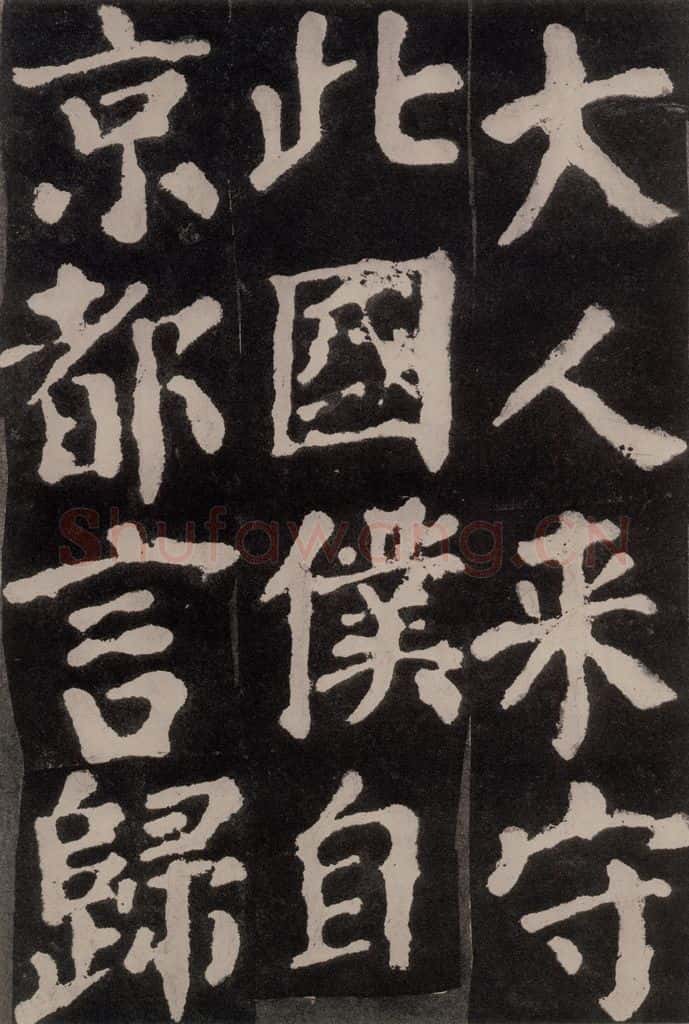 大人来守
此國僕自
京都言歸
Shufawang.CN